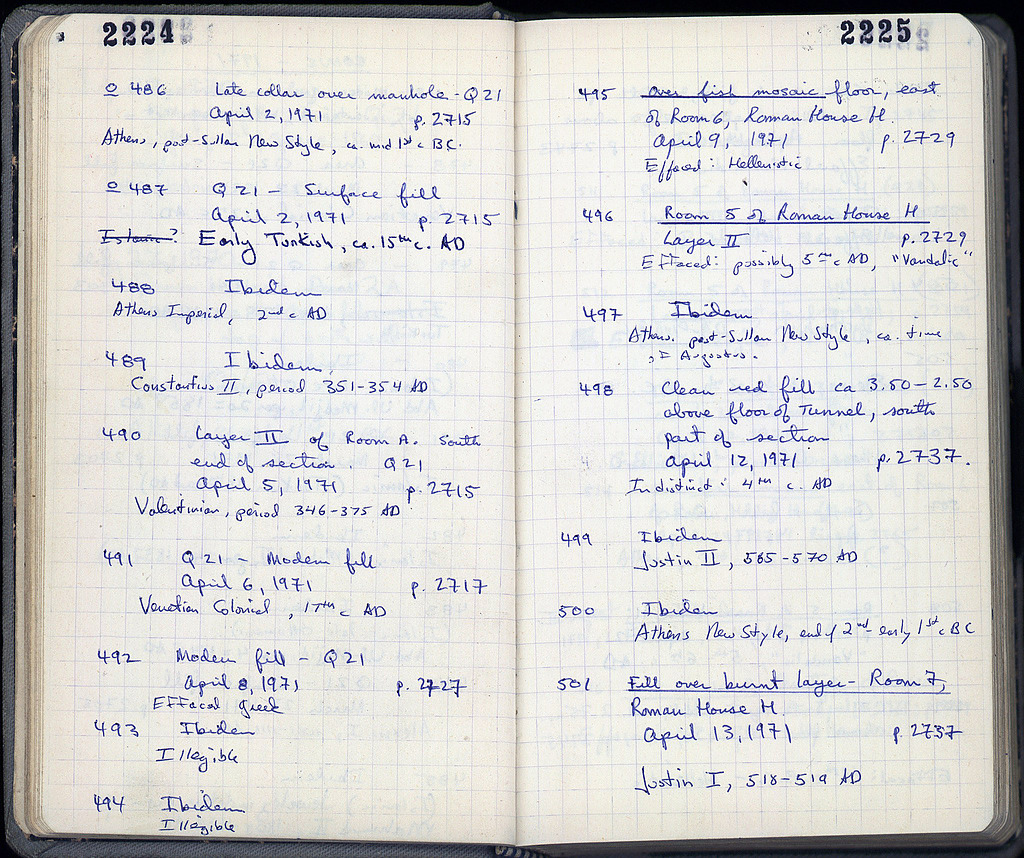 2224
o 486 Late collar over manhole - Q 21
April 2, 1971 p. 2715
Athens, post-Sullan New Style, ca. mid 1st c BC.
o 487 Q 21 - Surface fill
April 2, 1971 p. 2715
Islamic? Early Turkish, ca. 15th c. AD
488 Ibidem
Athens Imperial, 2nd c AD
489 Ibidem.
Constantius II, period 351-354 AD
490 Layer II of Room A. South
end of section. Q 21
April 5, 1971 p. 2715
Valentinian, period 346-375 AD
491 Q 21 - Modern fill
April 6, 1971 p. 2717
Venetian Colonial, 17th c AD
492 Modern fill - Q 21
April 8, 1971 p. 2727
Effaced Greek
493 Ibidem
Illegible
494 Ibidem
Illegible
2225
495 over fish mosaic floor, east
of Room 6, Roman House H.
April 9, 1971 p. 2729
Effaced: Hellenistic
496 Room 5 of Roman House H
Layer II p. 2729
Effaced: possibly 5th c AD, "Vandalic"
497 Ibidem
Athens. post-Sullan New Style, ca. time
of Augustus.
498 Clean red fill ca 3.50-2.50
above floor of Tunnel, south
part of section
April 12, 1971 p. 2737.
Indistinct: 4th c. AD
499 Ibidem
Justin II, 565-570 AD
500 Ibidem
Athens New Style, end of 2nd - early 1st c BC
501 Fill over burnt layer - Room 7,
Roman House H
April 13, 1971 p. 2737
Justin I, 518-519 AD